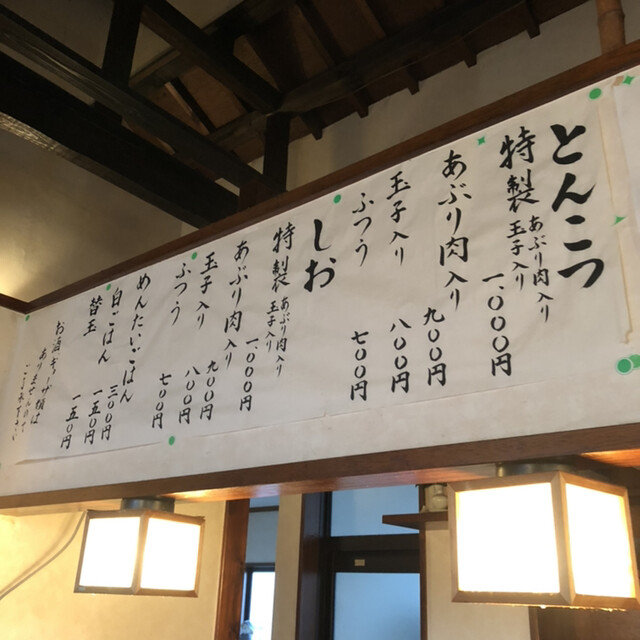 とんこつ
特製 あぶり肉入り 玉子入り 一.〇〇〇円
あぶり肉入り 九〇〇円
玉子入り 八〇〇円
ふつう 七〇〇円
しお
特製 あぶり肉入り 玉子入り 一.〇〇〇円
あぶり肉入り 九〇〇円
玉子入り 八〇〇円
ふつう 七〇〇円
めんたいごはん 三〇〇円
白ごはん 一五〇円
替玉 一五〇円
お酒
ありませんので